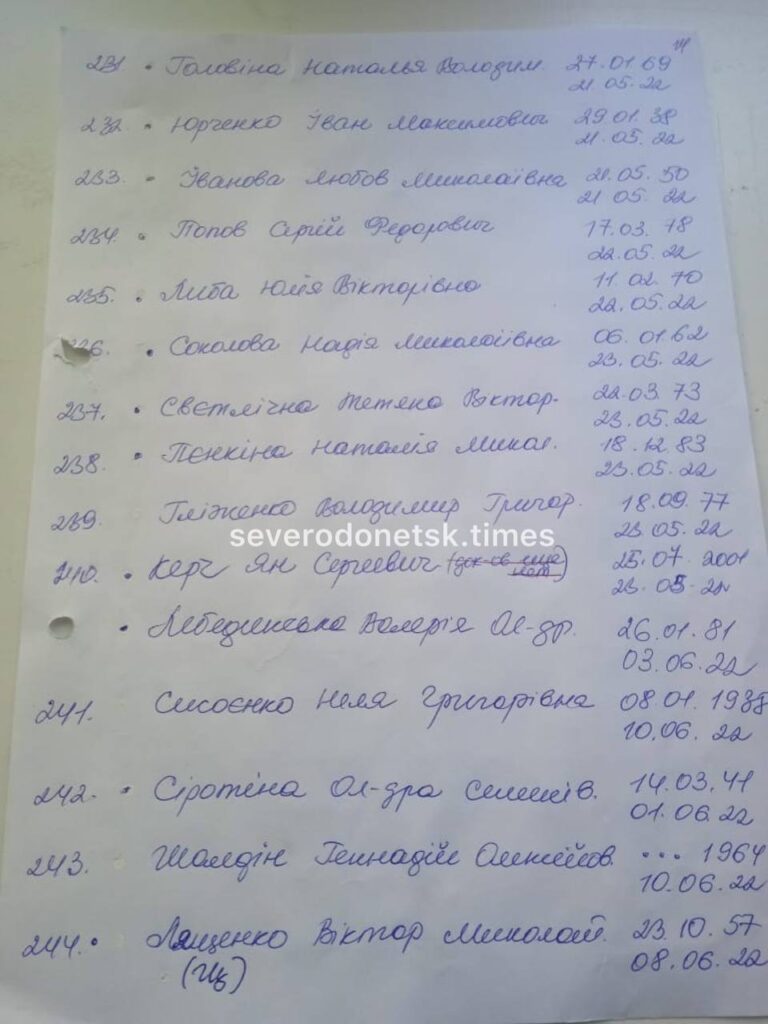 231. Головіна Наталья Володим. 27.01.69
21.05.22
232. Юрченко Іван Максимович 29.01.38
21.05.22
233. Іванова Любов Миколаївна 21.05.50
21.05.22
234. Попов Сергій Федорович 17.03.78
22.05.22
235. Либа Юлія Вікторівна 11.02.70
22.05.22
236. Соколова Надія Миколаївна 06.01.62
23.05.22
237. Свєтлічна Тетяна Віктор. 22.03.73
23.05.22
238. Пєнкіна Наталія Микол. 18.12.83
23.05.22
239. Володимир Григор. 18.09.77
23.05.22
severodonetsk.times
240. Керч Ян Сергеевич (док-ов еще нет) 25.07.2001
23.05.22
Лебединська Валерія Ол-др. 26.01.81
03.06.22
241. Сисоєнко Неля Григорівна 08.01.1938
10.06.22
242. Сіротіна Ол-дра 14.03.41
01.06.22
243. Геннадій Олексійов. ... 1964
10.06.22
244. Лященко Віктор Миколай. 23.10.57
08.06.22